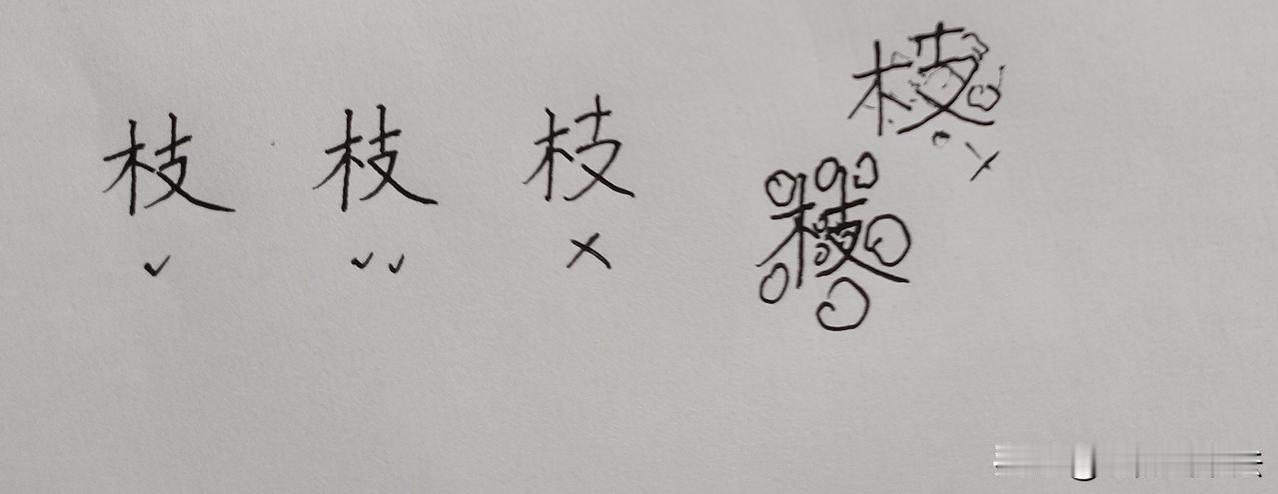 枝 枝 枝 枝
✓ ✓✓ × ×
枝